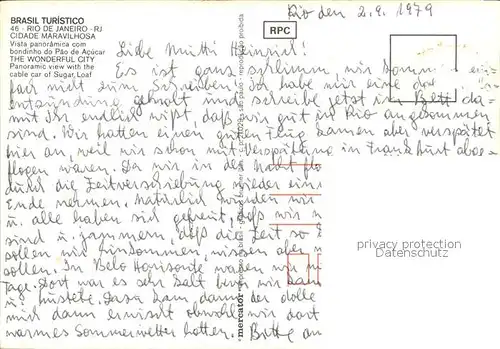 BRASIL TURÍSTICO
46 - RIO DE JANEIRO - RJ
CIDADE MARAVILHOSA
Vista panorâmica com
bondinho do Pão de Açúcar
THE WONDERFUL CITY
Panoramic view with the
cable car of Sugar Loaf
RPC
Rio den 2.9.1979
Liebe Mutti Heinrich!
Es ist ganz schlimm, wir kommen
fach nicht zum Schreiben. Ich habe mir eine
entzündung geholt und schreibe jetzt im Bett, da-
mit Ihr endlich wißt, daß wir gut in Rio angekommen
sind. Wir hatten einen guten Flug kamen aber verspätet
hier an, weil wir schon mit Verspätung in Frankfurt abge-
flogen waren. Da wir in der Nacht
durch die Zeitverschiebung wieder
Ende nehmen. Natürlich wurden wir
u. alle haben sich gefreut, daß wir
sind u. jammern, daß die Zeit so
sollen wir hinkommen, wissen aber
sollen. In Belo Horizonte waren wir
Tage. Dort war es sehr kalt
u. hustete. Dazu kam dann der tolle
mich dann erwischt obwohl wir dort
warmes Sommerwetter hatten. Bitte
mercator
privacy protection
Datenschutz